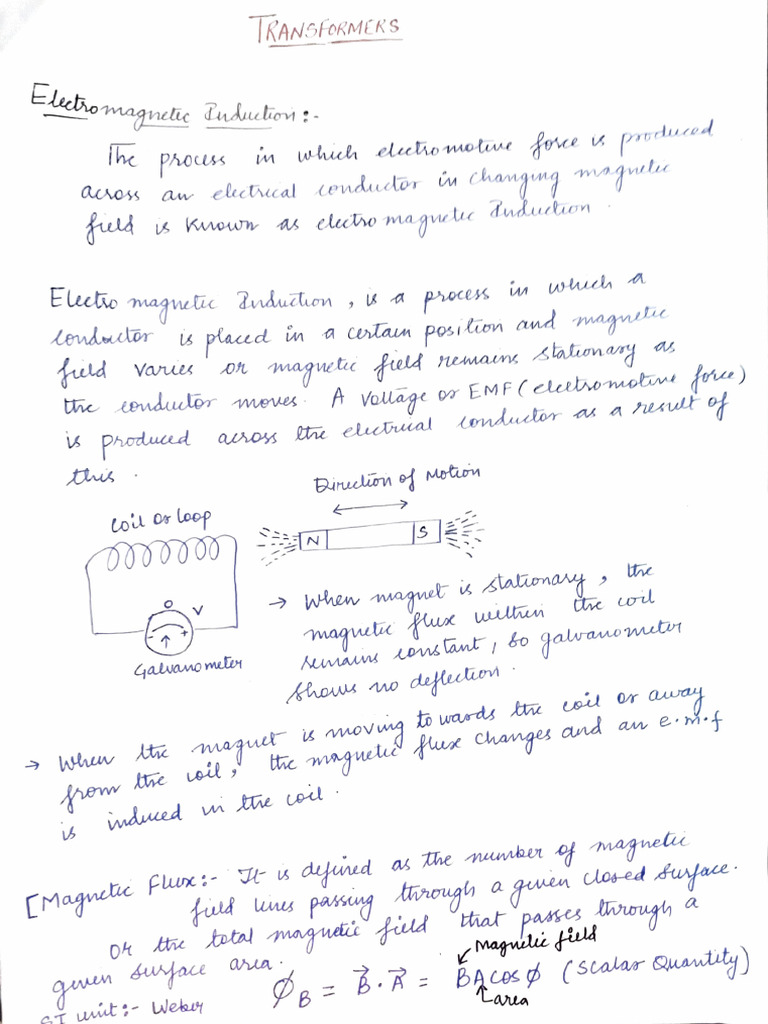 TRANSFORMERS
Electromagnetic Induction:-
The process in which electromotive force is produced
across an electrical conductor in changing magnetic
field is known as electromagnetic Induction.
Electro magnetic Induction, is a process in which a
conductor is placed in a certain position and magnetic
field varies or magnetic field remains stationary as
the conductor moves. A Voltage or EMF (electromotive force)
is produced across the electrical conductor as a result of
this.
Direction of Motion
Coil or loop
N
S
O
V
-
+
Galvanometer
→ When magnet is stationary, the
magnetic flux within the coil
remains constant, so galvanometer
shows no deflection.
→ When the magnet is moving towards the coil or away
from the coil, the magnetic flux changes and an e.m.f
is induced in the coil.
[Magnetic Flux:- It is defined as the number of magnetic
field lines passing through a given closed surface.
Or the total magnetic field that passes through a
given surface area.
Magnetic field
ϕ_B = B⃗ . A⃗ = BA cos ϕ (Scalar Quantity)
area
SI unit:- Weber